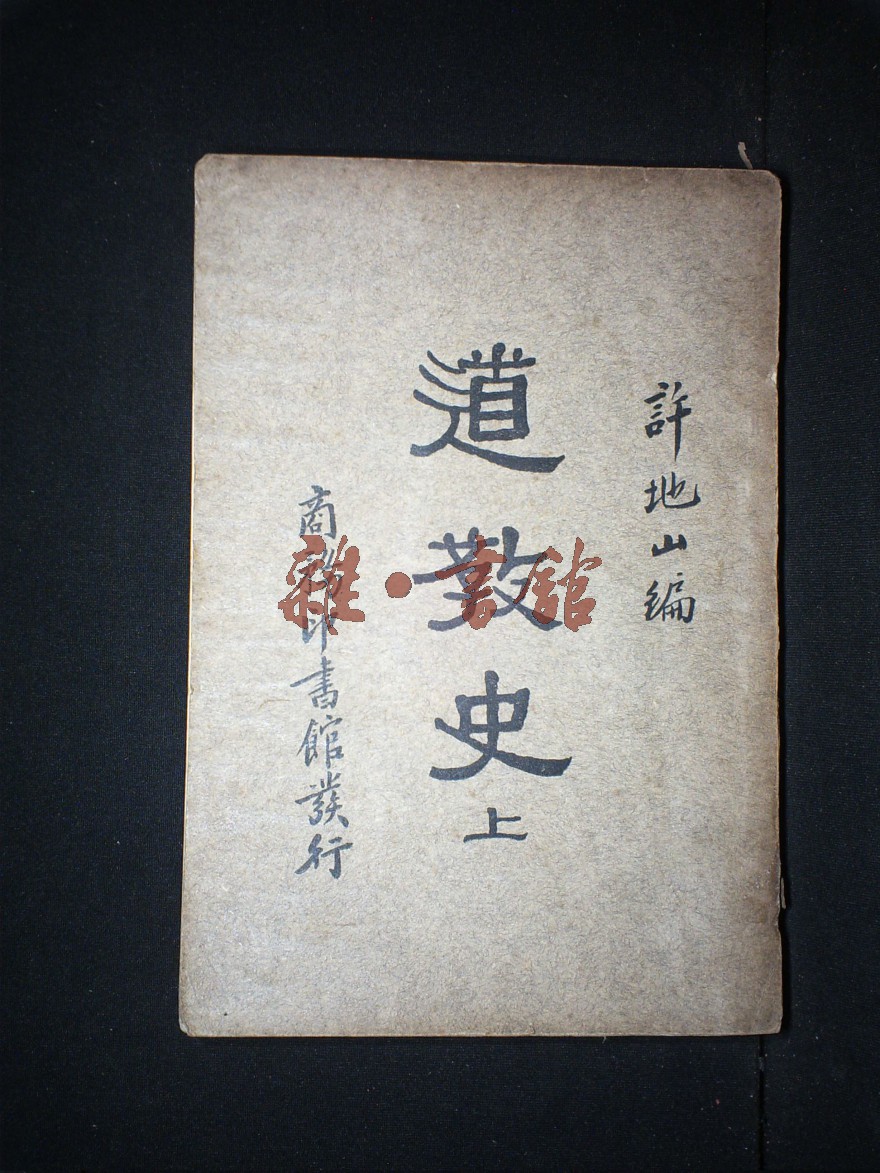 許地山編
道教史
上
商務印書館發行
雜·書館